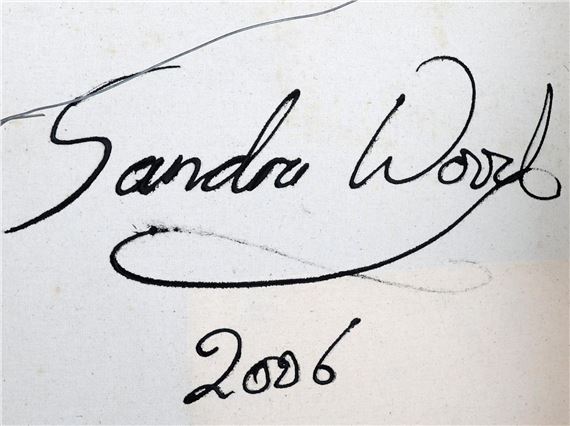 Sandra Woods
2006